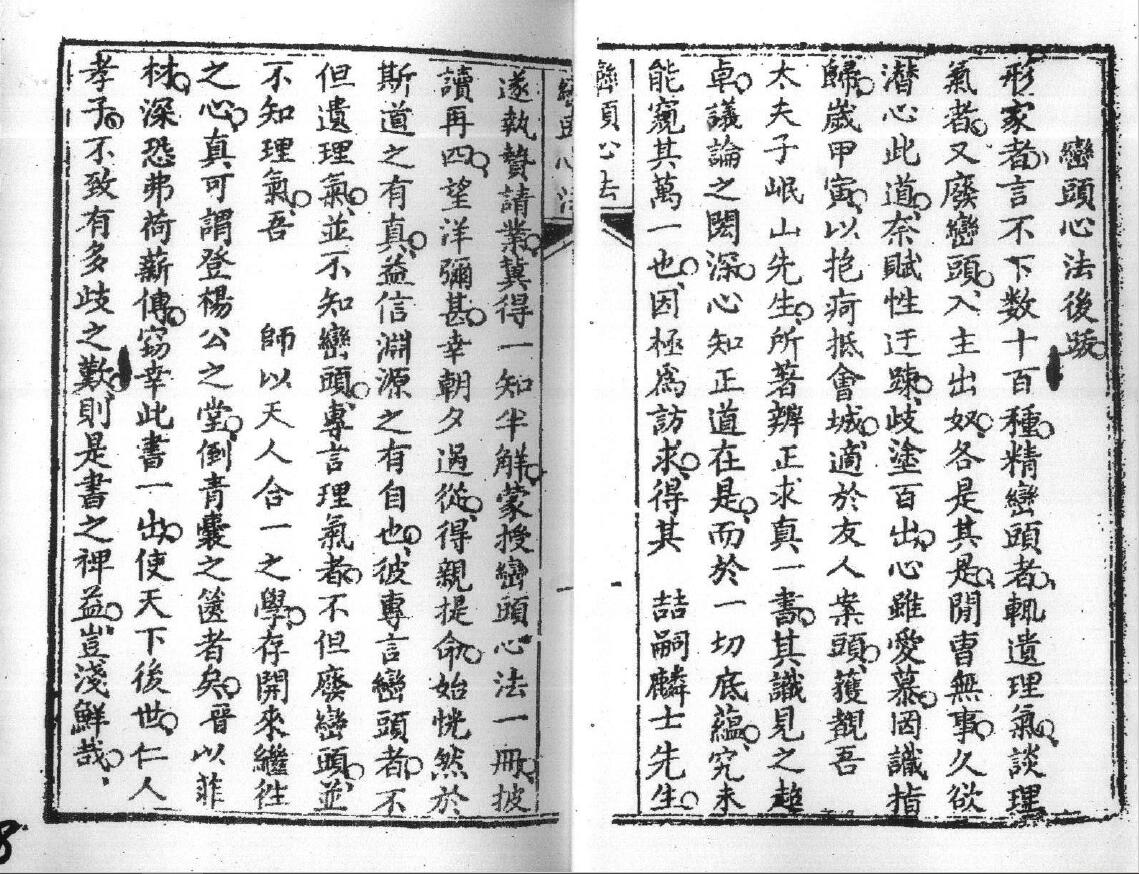 巒頭心法後跋
形家者言不下数十百種精巒頭者輒遺理氣談理
氣者又廢巒頭入主出奴各是其是閒曹無事久欲
潛心此道奈賦性迂踈歧塗百出心雖愛慕罔識指
歸歲甲寅以抱疴抵會城適於友人案頭獲覩吾
太夫子岷山先生所著辨正求真一書其識見之超
卓議論之閎深心知正道在是而於一切底蘊究未
能窺其萬一也因極爲訪求得其 喆嗣麟士先生
巒頭心法
遂執贄請業冀得一知半解蒙授巒頭心法一冊披
讀再四望洋彌甚幸朝夕過從得親提命始恍然於
斯道之有真益信淵源之有自也彼專言巒頭者不
但遺理氣並不知巒頭專言理氣者不但廢巒頭並
不知理氣吾 師以天人合一之學存開來繼往
之心真可謂登楊公之堂倒青囊之篋者矣晋以菲
材深恐弗荷薪傳竊幸此書一出使天下後世仁人
孝子不致有多歧之歎則是書之裨益豈淺鮮哉
8